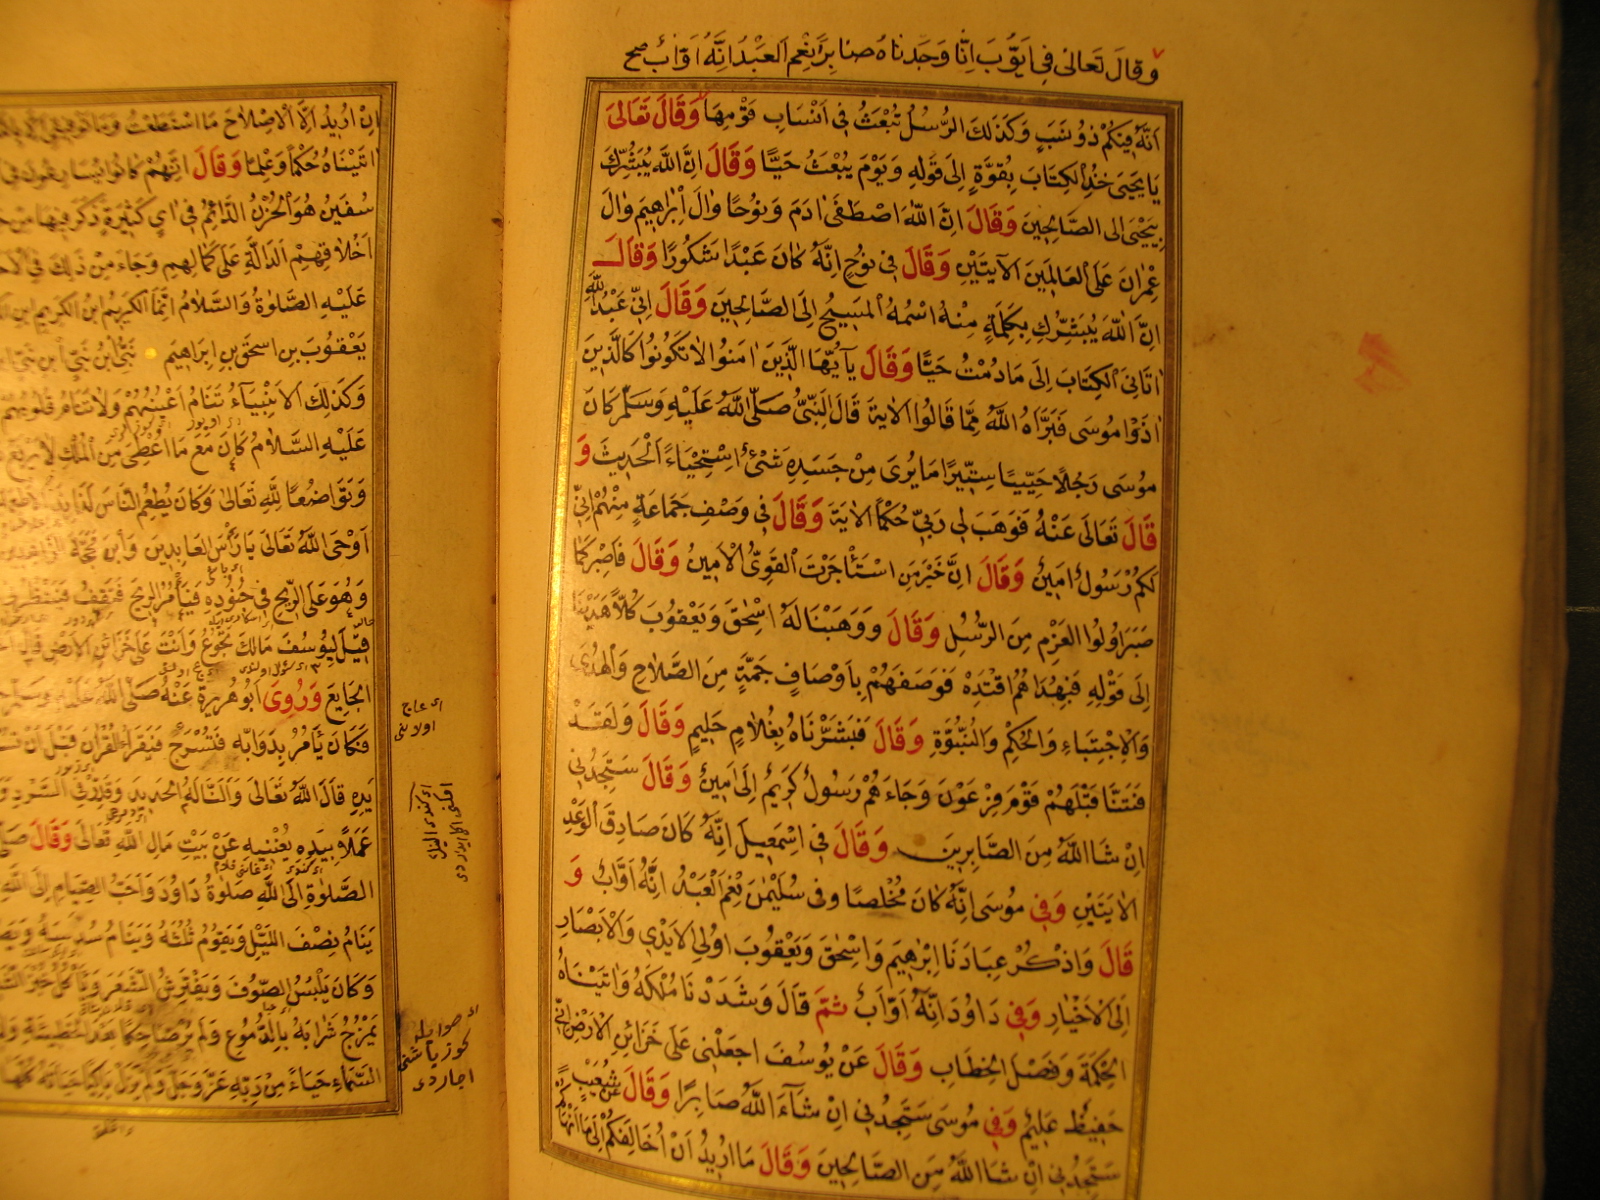 وقال تعالى في ايوب انا وجدناه صابرا نعم العبد انه اواب صح
انه فيكم ذو نسب وكذلك الرسل تبعث في انساب قومها وقال تعالى
يا يحيى خذ الكتاب بقوة الى قوله ويوم يبعث حيا وقال ان الله يبشرك
بيحيى الى الصالحين وقال ان الله اصطفى ادم ونوحا وال ابرهيم وال
عمران على العالمين الآيتين وقال في نوح انه كان عبدا شكورا وقال
ان الله يبشرك بكلمة منه اسمه المسيح الى الصالحين وقال اني عبد الله
اتاني الكتاب الى ما دمت حيا وقال يآ يها الذين امنوا لا تكونوا كالذين
اذوا موسى فبراه الله مما قالوا الاية قال النبي صلى الله عليه وسلم كان
موسى رجلا حييا ستيرا ما يرى من جسده شئ استحياء الحديث و
قال تعالى عنه فوهب لي ربي حكما الاية وقال في وصف جماعة منهم اني
لكم رسول امين وقال ان خير من استأجرت القوي الامين وقال فاصبر كما
صبر اولوا العزم من الرسل وقال ووهبنا له اسحق ويعقوب كلا هدينا
الى قوله فبهداهم اقتده فوصفهم باوصاف جمة من الصلاح والهدى
والاجتباء والحكم والنبوة وقال فبشرناه بغلام حليم وقال ولقد
فتنا قبلهم قوم فرعون وجاءهم رسول كريم الى امين وقال ستجدني
ان شا الله من الصابرين وقال في اسمعيل انه كان صادق الوعد
الايتين وفي موسى انه كان مخلصا وفى سليمن نعم العبد انه اواب و
قال واذكر عبادنا ابرهيم واسحق ويعقوب اولي الايدي والابصار
الى الاخيار وفي داود انه اواب ثم قال وشددنا ملكه واتيناه
الحكمة وفصل الخطاب وقال عن يوسف اجعلني على خزائن الارض اني
حفيظ عليم وفي موسى ستجدني ان شآء الله صابرا وقال عن شعيب
ستجدني ان شا الله من الصالحين وقال ما اريد ان اخالفكم الى ما انهاكم
ان اريد الا الاصلاح ما استطعت وما توفيقي الا
اتيناه حكما وعلما وقال انهم كانوا يسارعون في
سفين هو الحزن الدائم في اي كثيرة ذكر فيها من
اخلاقهم الدالة على كمالهم وجاء من ذلك في
عليه الصلوة والسلام انما الكريم ابن الكريم ابن
يعقوب بن اسحق بن ابراهيم نبي ابن نبي ابن نبي
وكذلك الانبياء تنام اعينهم ولا تنام قلوبهم
عليه السلام كان مع ما اعطى من الملك لا يرفع
وتواضعا لله تعالى وكان يطعم الناس لذايذ
اوحى الله تعالى يا رأس العابدين وابن
وهو على الريح في جنوده فيأمر الريح فتقف فينظر
قيل ليوسف مالك تجوع وانت على خزائن الارض قال
الجايع وروى ابو هريرة عنه صلى الله عليه وسلم
فكان يأمر بدوابه فتسرج فيقرأ القرأن قبل ان
يده قال الله تعالى والنا له الحديد وقدر في السرد
عملا بيده يغنيه عن بيت مال الله تعالى وقال
الصلوة الى الله صلوة داود واحب الصيام الى الله
ينام نصف الليل ويقوم ثلثه وينام سدسه
وكان يلبس الصوف ويفترش الشعر ويأكل خبز
يمزج شرابه بالدموع ولم ير ضاحكا بعد الخطيئة
السماء حياء من ربه عز وجل ولم يزل باكيا حياته كلها